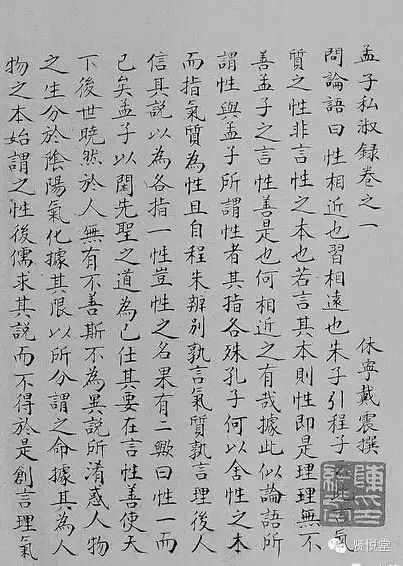 孟子私淑録卷之一　休寧戴震撰
問論語曰性相近也習相遠也朱子引程子云此言氣
質之性非言性之本也若言其本則性即是理理無不
善孟子之言性善是也何相近之有哉據此似論語所
謂性與孟子所謂性者其指各殊孔子何以舍性之本
而指氣質為性且自程朱辨別孰言氣質孰言理後人
信其說以為各指一性豈性之名果有二歟曰性一而
已矣孟子以閑先聖之道為已任其要在言性善使天
下後世曉然於人無有不善斯不為異說所淆惑人物
之生分於陰陽氣化據其限以所分謂之命據其為人
物之本始謂之性後儒求其說而不得於是創言理氣
贤悦堂